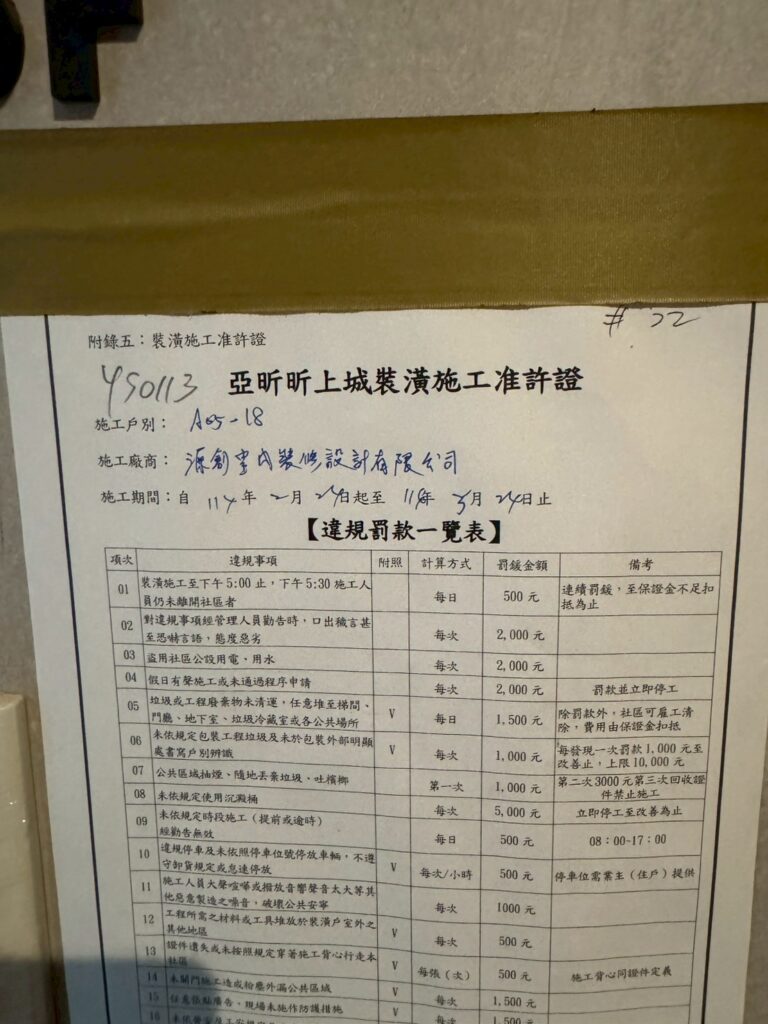 # 22
附錄五：裝潢施工准許證
YS0113
亞昕昕上城裝潢施工准許證
施工戶別： A05-18
施工廠商： 源創室內裝修設計有限公司
施工期間：自 114年 2月 24日起至 114年 5月 24日止
【違規罰款一覽表】
項次 違規事項 附照 計算方式 罰鍰金額 備考
01 裝潢施工至下午 5:00 止，下午 5:30 施工人
員仍未離開社區者 每日 500 元 連續罰鍰，至保證金不足扣
抵為止
02 對違規事項經管理人員勸告時，口出穢言甚
至恐赫言語，態度惡劣 每次 2,000 元
03 盜用社區公設用電、用水 每次 2,000 元
04 假日有聲施工或未通過程序申請 每次 2,000 元 罰款並立即停工
05 垃圾或工程廢棄物未清運，任意堆至梯間、
門廳、地下室、垃圾冷藏室或各公共場所 V 每日 1,500 元 除罰款外，社區可雇工清
除，費用由保證金扣抵
06 未依規定包裝工程垃圾及未於包裝外部明顯
處書寫戶別辨識 V 每次 1,000 元 每發現一次罰款 1,000 元至
改善止，上限 10,000 元
07 公共區域抽煙、隨地丟棄垃圾、吐檳榔 第一次 1,000 元 第二次 3000 元第三次回收證
件禁止施工
08 未依規定使用沉澱桶 每次 5,000 元 立即停工至改善為止
09 未依規定時段施工（提前或逾時）
經勸告無效 每日 500 元 08：00~17：00
10 違規停車及未依照停車位號停放車輛，不遵
守卸貨規定或怠速停放 V 每次/小時 500 元 停車位需業主（住戶）提供
11 施工人員大聲喧嘩或撥放音響聲音太大等其
他惡意製造之噪音，破壞公共安寧 每次 1000 元
12 工程所需之材料或工具堆放於裝潢戶室外之
其他地區 V 每次 500 元
13 證件遺失或未按照規定穿著施工背心行走本
社區 V 每張（次） 500 元 施工背心同證件定義
14 未關門施工造成粉塵外漏公共區域 V 每次 1,500 元
15 任意張貼廣告、現場未施作防護措施 V 每次 1,500 元
16